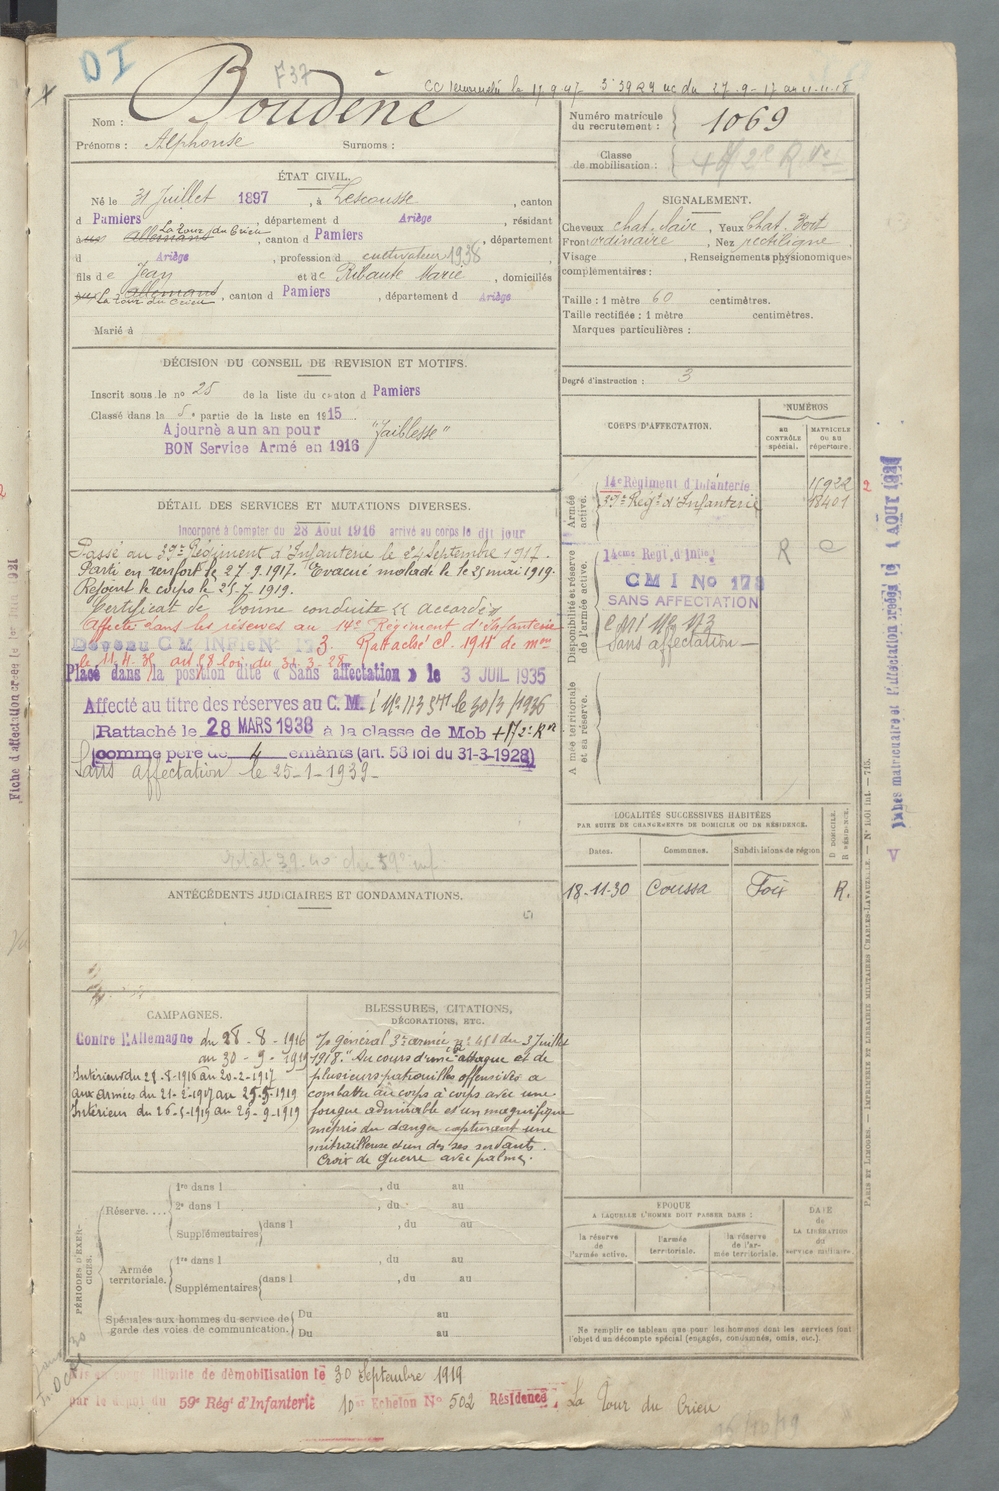 DI
F37
CC
Nom : Boudène
Prénoms : Alphonse Surnoms :
Numéro matricule du recrutement : 1069
Classe de mobilisation :
ÉTAT CIVIL.
Né le 31 Juillet 1897, à Lescousse, canton
d Pamiers, département d Ariège, résidant
à Allemans La Tour du Crieu, canton d Pamiers, département
d Ariège, profession d cultivateur 1938
fils de Jean et de Ribaute Marie, domiciliés
Allemans La Tour du Crieu, canton d Pamiers, département d Ariège
Marié à
SIGNALEMENT.
Cheveux chat. clair, Yeux Chat. Vert
Front ordinaire, Nez rectiligne
Visage , Renseignements physionomiques
complémentaires :
Taille : 1 mètre 60 centimètres.
Taille rectifiée : 1 mètre centimètres.
Marques particulières :
Degré d'instruction : 3
DÉCISION DU CONSEIL DE REVISION ET MOTIFS.
Inscrit sous le nº 25 de la liste du canton d Pamiers
Classé dans la 5e partie de la liste en 1915
Ajourné a un an pour "Faiblesse"
BON Service Armé en 1916
DÉTAIL DES SERVICES ET MUTATIONS DIVERSES.
Incorporé à Compter du 28 Août 1916 arrivé au corps le dit jour
Passé au 37e Régiment d'Infanterie le 24 Septembre 1917.
Parti en renfort le 27.9.1917. Evacué malade le 25 mai 1919.
Rejoint le corps le 25.7.1919.
Certificat de bonne conduite "accordé"
Affecté dans les réserves au 14e Régiment d'Infanterie
Rattaché cl. 1911 de mon
le 11.11. art 58 loi du 31-3-28
Placé dans la position dite « Sans affectation » le 3 JUIL 1935
Affecté au titre des réserves au C. M.
Rattaché le 28 MARS 1938 à la classe de Mob
comme père de 4 enfants (art. 58 loi du 31-3-1928)
Sans affectation le 25-1-1939
CORPS D'AFFECTATION.
NUMÉROS
au CONTRÔLE spécial.
MATRICULE OU AU répertoire.
Armée active.
14e Régiment d'Infanterie 15922
37e Régt d'Infanterie 18401
Disponibilité et réserve de l'armée active.
14eme Régt. d'Infie R C
CMI No 173
SANS AFFECTATION
CMI No 173
Sans affectation
Armée territoriale et sa réserve.
LOCALITÉS SUCCESSIVES HABITÉES
PAR SUITE DE CHANGEMENTS DE DOMICILE OU DE RÉSIDENCE.
Dates. Communes. Subdivisions de région D DOMICILE. R RÉSIDENCE.
18-11-30 Coussa Foix R.
ANTÉCÉDENTS JUDICIAIRES ET CONDAMNATIONS.
CAMPAGNES.
Contre l'Allemagne du 28-8-1916
au 30-9-1919
Intérieur du 28-8-1916 au 20-2-1917
aux Armées du 21-2-1917 au 25-5-1919
Intérieur du 26-5-1919 au 29-9-1919
BLESSURES, CITATIONS,
DÉCORATIONS, ETC.
général 3e armée nº 451 du 3 Juillet
1918. "Au cours d'une attaque et de
plusieurs patrouilles offensives a
combattu au corps à corps avec une
fougue admirable et un magnifique
mépris du danger capturant une
mitrailleuse et un de ses servants.
Croix de guerre avec palme.
PÉRIODES D'EXERCICES.
Réserve.... 1re dans l , du au
2e dans l , du au
Supplémentaires dans l , du au
Armée territoriale. 1re dans l , du au
Supplémentaires dans l , du au
Spéciales aux hommes du service de garde des voies de communication. Du au
Du au
EPOQUE
A LAQUELLE L'HOMME DOIT PASSER DANS :
la réserve de l'armée active. l'armée territoriale. la réserve de l'armée territoriale.
DATE de LA LIBÉRATION du service militaire.
Ne remplir ce tableau que pour les hommes dont les services font
l'objet d'un décompte spécial (engagés, condamnés, omis, etc.).
illimité de démobilisation le 30 Septembre 1919
par le dépôt du 59e Régt d'Infanterie 10e Echelon No 502 Résidence, La Tour du Crieu
Fiche d'affectation créée le 1er Juin 1921
PARIS ET LIMOGES. — IMPRIMERIE ET LIBRAIRIE MILITAIRES CHARLES-LAVAUZELLE